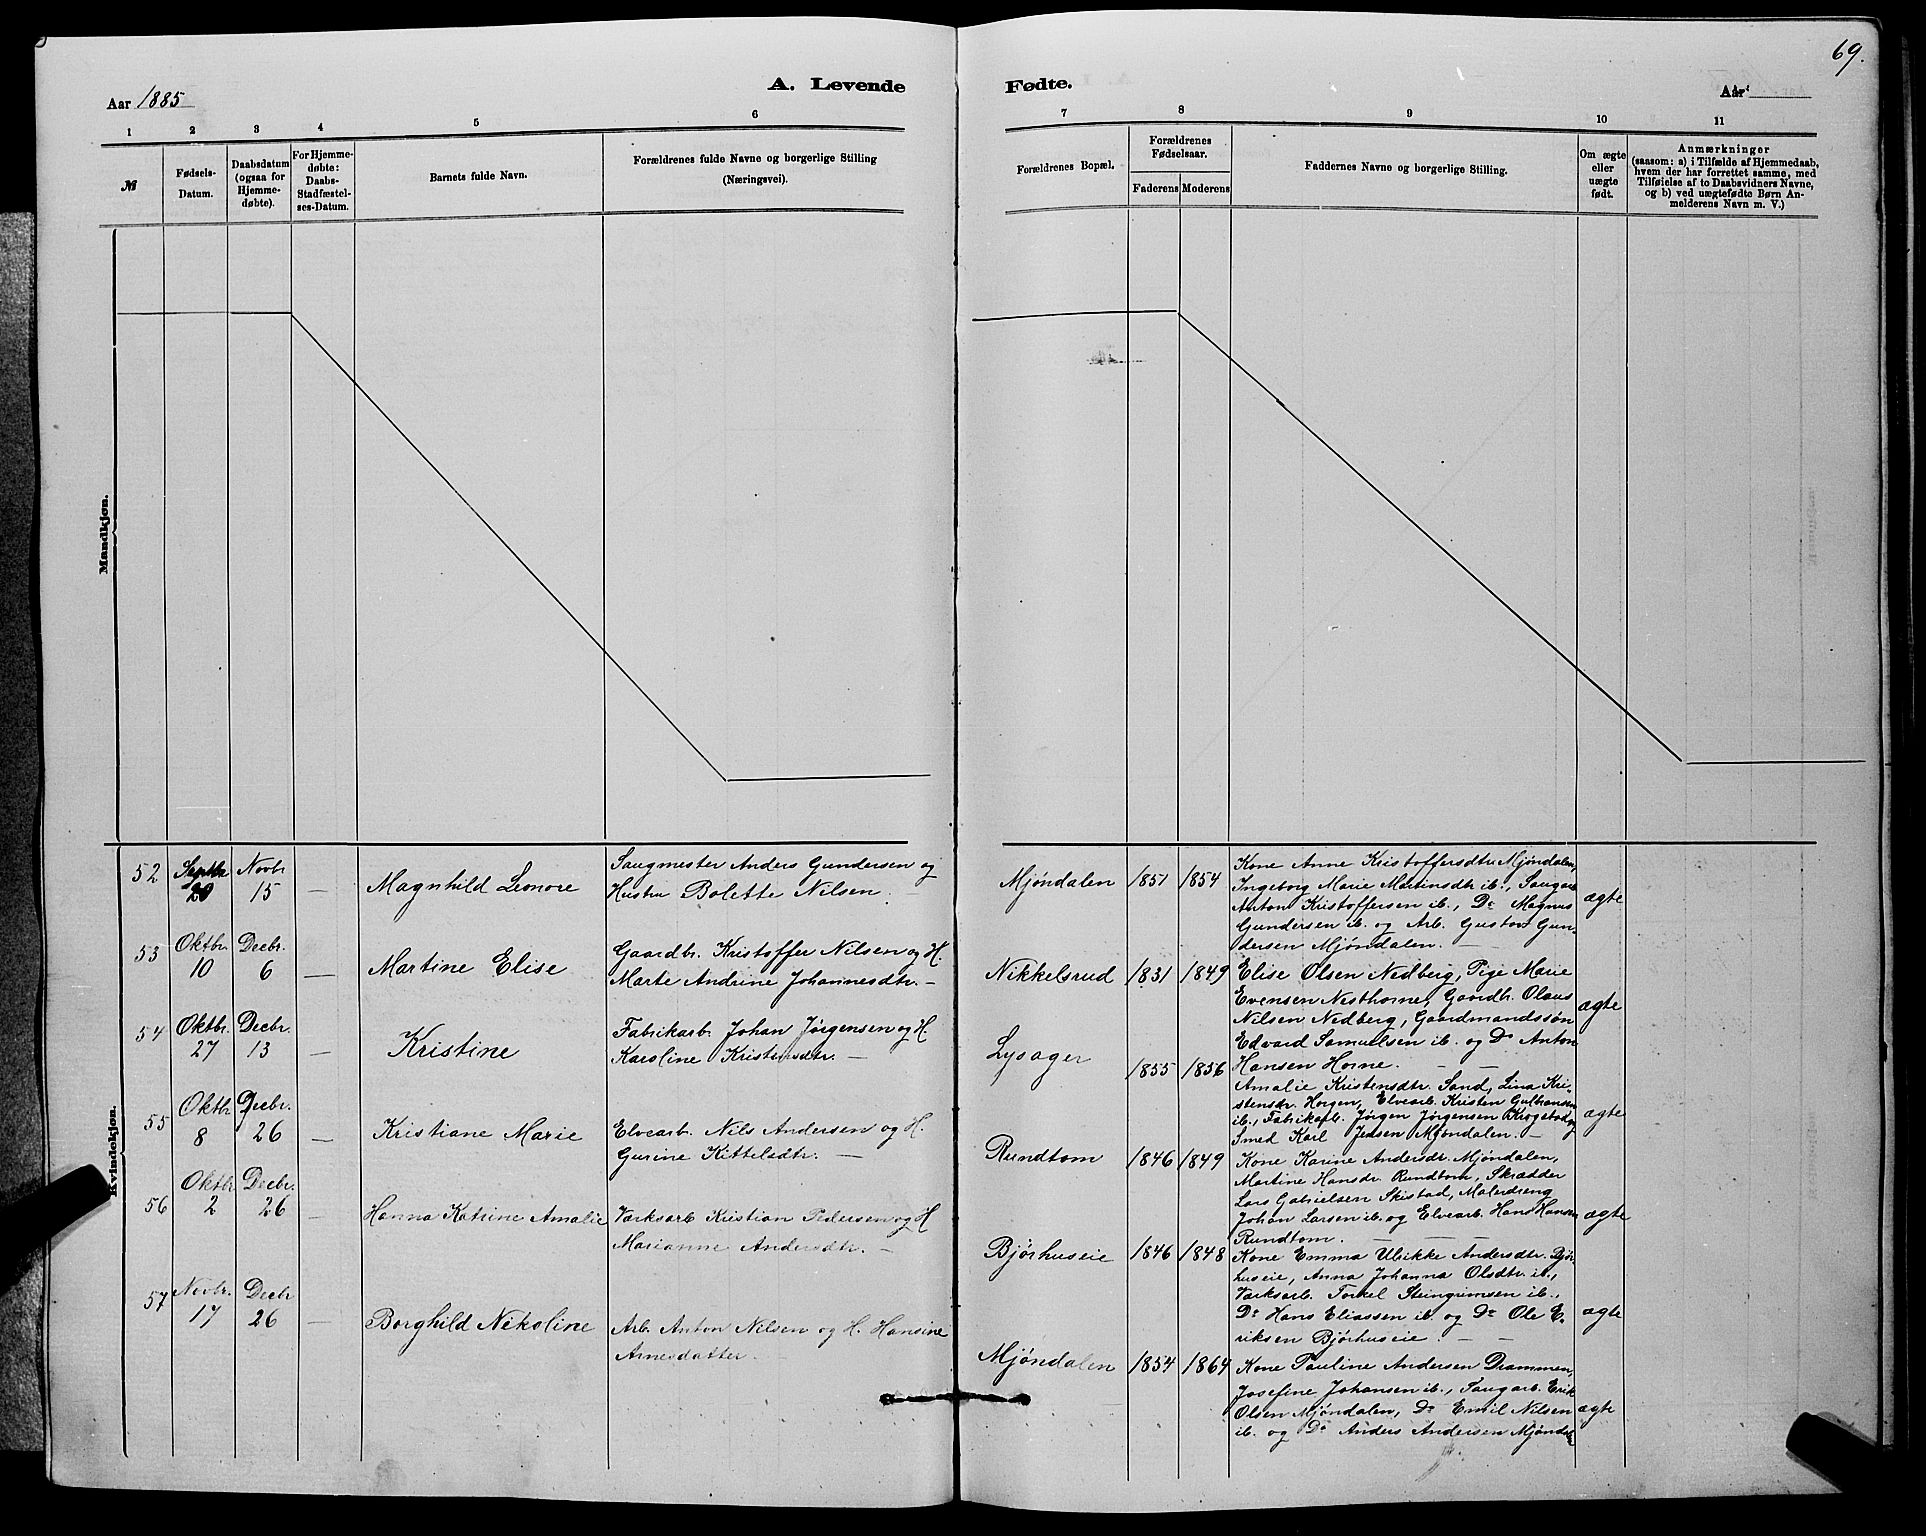 69.
Aar 1885
A. Levende
Fødte.
Aar
1 2 3 4 5 6
7 8 9 10 11
№
Fødsels-
Datum.
Daabsdatum
(ogsaa for
Hjemme-
døbte).
For Hjemme-
døbte:
Daabs-
Stadfæstel-
ses-Datum.
Barnets fulde Navn.
Forældrenes fulde Navne og borgerlige Stilling
(Næringsvei).
Forældrenes Bopæl.
Forældrenes
Fødselsaar.
Faderens Moderens
Faddernes Navne og borgerlige Stilling.
Om ægte
eller
uægte
født.
Anmærkninger
(saasom: a) i Tilfælde af Hjemmedaab,
hvem der har forrettet samme, med
Tilføielse af to Daabsvidners Navne,
og b) ved uægtefødte Børn An-
melderens Navn m. V.)
Mandkjøn.
Kvindekjøn.
52
Septbr
20
Novbr
15
—
Magnhild Leonore
Saugmester Anders Gundersen og
Hustru Bolette Nilsen.
Mjøndalen 1851 1854
Kone Anne Kristoffersdtr. Mjøndalen,
Ingeborg Marie Martinsdtr ib., Saugarb
Anton Kristoffersen ib., Do Magnus
Gundersen ib. og Arb. Gustav Gun-
dersen Mjøndalen. —
ægte
53
Oktbr.
10
Decbr.
6
—
Martine Elise
Gaardbr. Kristoffer Nilsen og H.
Marte Andrine Johannesdtr. —
Nikkelsrud 1831 1849
Elise Olsen Nedberg, Pige Marie
Evensen Nesthorne, Gaardbr. Olaus
Nilsen Nedberg, Gaardmandssøn
Edvard Samuelsen ib. og Do Anton
Hansen Horne. — —
ægte
54
Oktbr.
27
Decbr.
13
—
Kristine
Fabrikarb. Johan Jørgensen og H.
Karoline Kristensdtr. —
Lysager 1855 1856
Amalie Kristensdtr. Sand, Lina Kri-
stensdr. Horgen, Elvearb. Kristen Gulbransen
ib., Fabrikarb. Jørgen Jørgensen Krogstad og
Smed Karl Jensen Mjøndalen. —
ægte
55
Oktbr
8
Decbr.
26
—
Kristiane Marie
Elvearb. Nils Andersen og H.
Gurine Kittelsdtr. —
Rundtom 1846 1849
Kone Karine Andersdr. Mjøndalen,
Martine Hansdr. Rundtom, Skrædder
Lars Gabrielsen Skistad, Malerdreng
Johan Larsen ib. og Elvearb. Hans Hansen
Rundtom. — — —
ægte
56
Oktbr
2
Decbr.
26
—
Hanna Katrine Amalie
Værksarb Kristian Pedersen og H
Marianne Andersdtr. —
Bjørhuseie 1846 1848
Kone Emma Ulrikke Andersdtr. Bjør-
huseie, Anna Johanna Olsdtr. ib.,
Værksarb. Torkel Steingrimsen ib.,
Do Hans Eliassen ib. og Do Ole E-
riksen Bjørhuseie. — —
ægte
57
Novbr.
17
Decbr
26
—
Borghild Nikoline
Arb. Anton Nilsen og H. Hansine
Arnesdatter. —
Mjøndalen 1854 1864
Kone Pauline Andersen Drammen,
Josefine Johansen ib., Saugarb. Erik
Olsen Mjøndalen, Do Emil Nilsen
ib. og Do Anders Andersen Mjøndalen
ægte